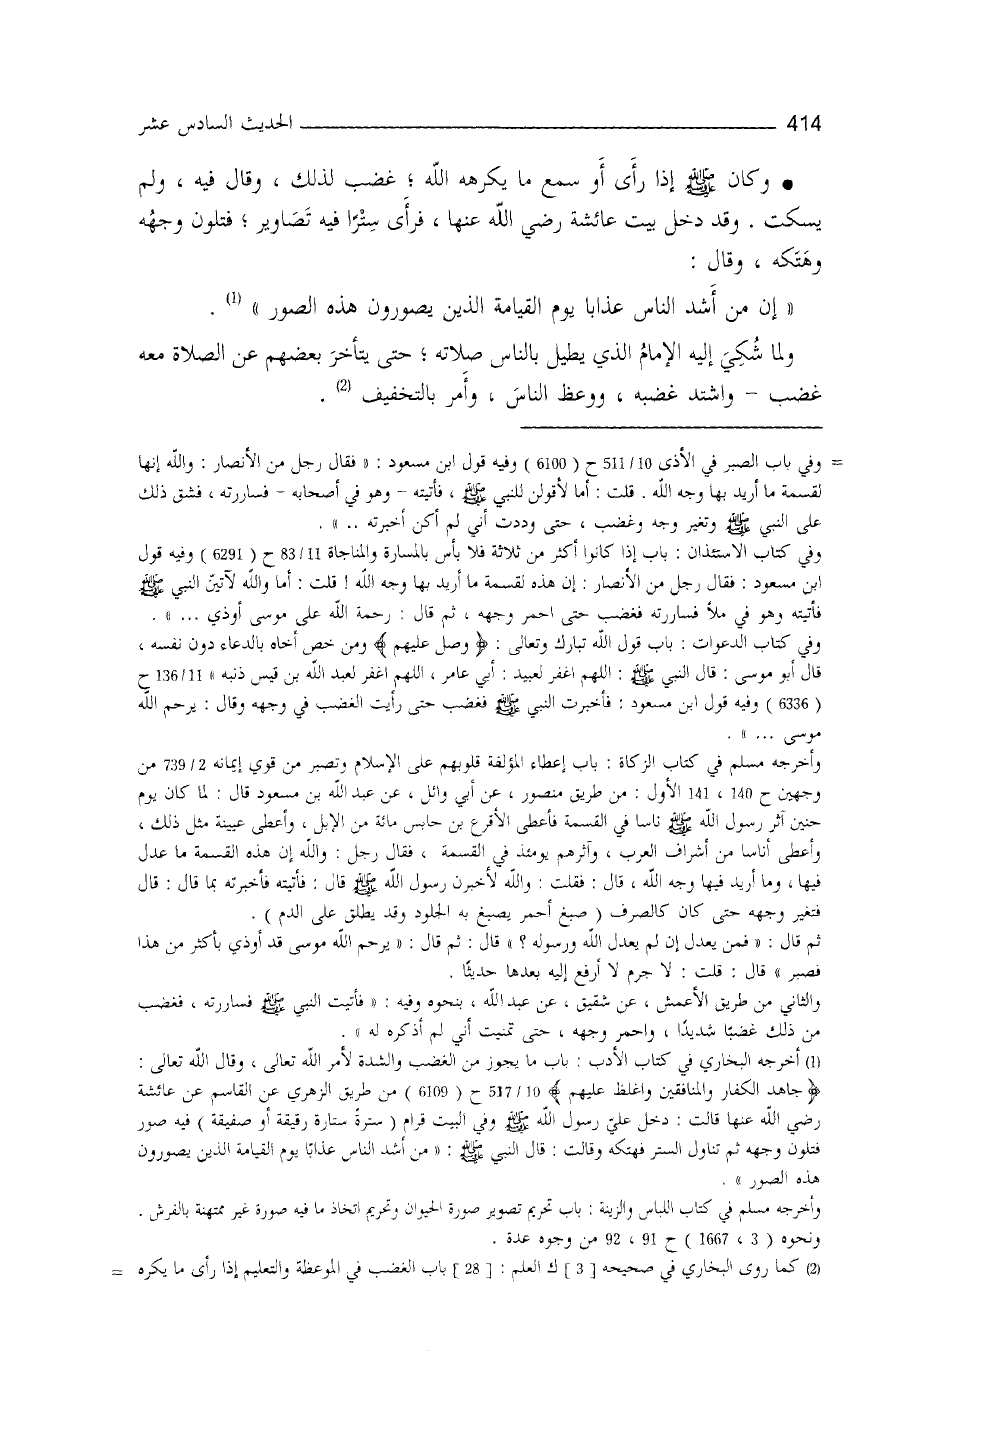 414 الحديث السادس عشر
• وكان ﷺ إذا رأى أو سمع ما يكرهه الله ؛ غضب لذلك ، وقال فيه ، ولم
يسكت . وقد دخل بيت عائشة رضي الله عنها ، فرأى سِتْرًا فيه تَصَاوير ؛ فتلون وجهُه
وهَتَكه ، وقال :
« إن من أشد الناس عذابا يوم القيامة الذين يصورون هذه الصور » (1) .
ولما شُكِيَ إليه الإمامُ الذي يطيل بالناس صلاته ؛ حتى يتأخرَ بعضهم عن الصلاة معه
غضب – واشتد غضبه ، ووعظ الناسَ ، وأمر بالتخفيف (2) .
= وفي باب الصبر في الأذى 511/10 ح ( 6100 ) وفيه قول ابن مسعود : « فقال رجل من الأنصار : والله إنها
لقسمة ما أريد بها وجه الله . قلت : أما لأقولن للنبي ﷺ ، فأتيته – وهو في أصحابه – فساررته ، فشق ذلك
على النبي ﷺ وتغير وجه وغضب ، حتى وددت أني لم أكن أخبرته .. » .
وفي كتاب الاستئذان : باب إذا كانوا أكثر من ثلاثة فلا بأس بالمسارة والمناجاة 83/11 ح ( 6291 ) وفيه قول
ابن مسعود : فقال رجل من الأنصار : إن هذه لقسمة ما أريد بها وجه الله ! قلت : أما والله لآتينّ النبي ﷺ
فأتيته وهو في ملأ فساررته فغضب حتى احمر وجهه ، ثم قال : رحمة الله على موسى أوذي ... » .
وفي كتاب الدعوات : باب قول الله تبارك وتعالى : ﴿ وصل عليهم ﴾ ومن خص أخاه بالدعاء دون نفسه ،
قال أبو موسى : قال النبي ﷺ : اللهم اغفر لعبيد : أبي عامر ، اللهم اغفر لعبد الله بن قيس ذنبه » 136/11 ح
( 6336 ) وفيه قول ابن مسعود : فأخبرت النبي ﷺ فغضب حتى رأيت الغضب في وجهه وقال : يرحم الله
موسى ... » .
وأخرجه مسلم في كتاب الزكاة : باب إعطاء المؤلفة قلوبهم على الإسلام وتصبر من قوي إيمانه 739/2 من
وجهين ح 140 ، 141 الأول : من طريق منصور ، عن أبي وائل ، عن عبد الله بن مسعود قال : لما كان يوم
حنين آثر رسول الله ﷺ ناسا في القسمة فأعطى الأقرع بن حابس مائة من الإبل ، وأعطى عيينة مثل ذلك ،
وأعطى أناسا من أشراف العرب ، وآثرهم يومئذ في القسمة ، فقال رجل : والله إن هذه القسمة ما عدل
فيها ، وما أريد فيها وجه الله ، قال : فقلت : والله لأخبرن رسول الله ﷺ قال : فأتيته فأخبرته بما قال : قال
فتغير وجهه حتى كان كالصرف ( صبغ أحمر يصبغ به الجلود وقد يطلق على الدم ) .
ثم قال : « فمن يعدل إن لم يعدل الله ورسوله ؟ » قال : ثم قال : « يرحم الله موسى قد أوذي بأكثر من هذا
فصبر » قال : قلت : لا جرم لا أرفع إليه بعدها حديثًا .
والثاني من طريق الأعمش ، عن شقيق ، عن عبد الله ، بنحوه وفيه : « فأتيت النبي ﷺ فساررته ، فغضب
من ذلك غضبًا شديدًا ، واحمر وجهه ، حتى تمنيت أني لم أذكره له » .
(1) أخرجه البخاري في كتاب الأدب : باب ما يجوز من الغضب والشدة لأمر الله تعالى ، وقال الله تعالى :
﴿ جاهد الكفار والمنافقين واغلظ عليهم ﴾ 517/10 ح ( 6109 ) من طريق الزهري عن القاسم عن عائشة
رضي الله عنها قالت : دخل عليّ رسول الله ﷺ وفي البيت قرام ( سترةٌ ستارة رقيقة أو صفيقة ) فيه صور
فتلون وجهه ثم تناول الستر فهتكه وقالت : قال النبي ﷺ : « من أشد الناس عذابًا يوم القيامة الذين يصورون
هذه الصور » .
وأخرجه مسلم في كتاب اللباس والزينة : باب تحريم تصوير صورة الحيوان وتحريم اتخاذ ما فيه صورة غير ممتهنة بالفرش .
ونحوه ( 3 ، 1667 ) ح 91 ، 92 من وجوه عدة .
(2) كما روى البخاري في صحيحه [ 3 ] ك العلم : [ 28 ] باب الغضب في الموعظة والتعليم إذا رأى ما يكره =